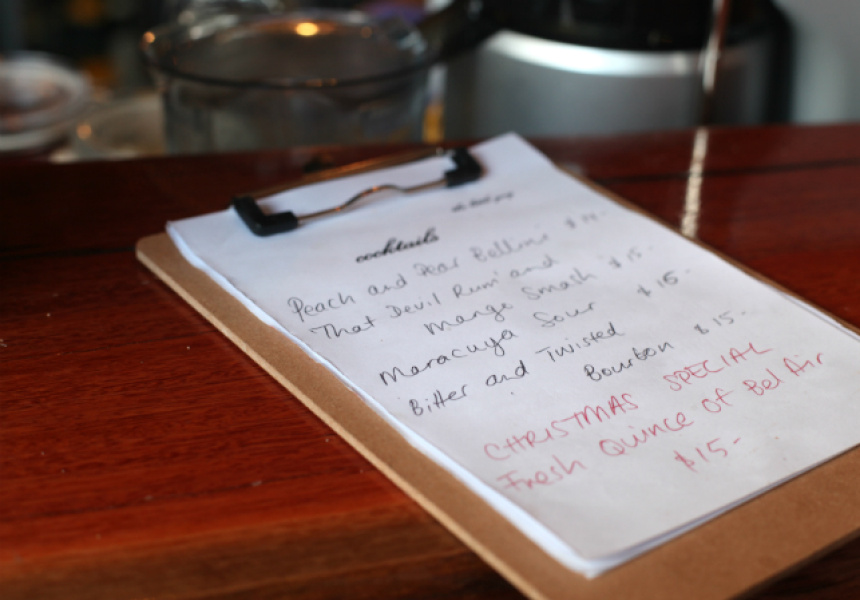 cocktails
Peach and Pear Bellini $14-
That Devil Rum and
Mango Smash $15-
Maracuya Sour $15-
Bitter and Twisted
Bourbon $15-
CHRISTMAS SPECIAL
Fresh Quince of Bel Air
$15-